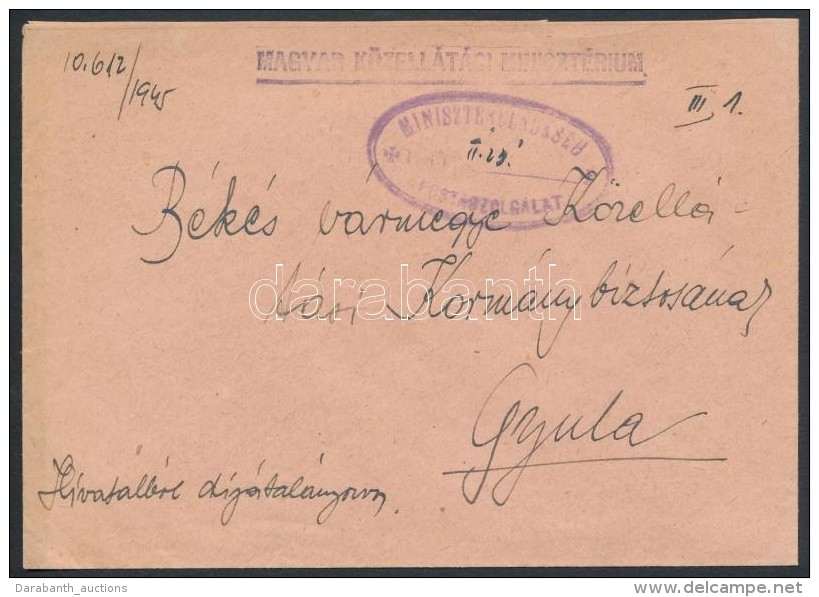 MAGYAR KÖZELLÁTÁSI MINISZTÉRIUM
10.612/1945
III. 1.
MINISZTERELNÖKSÉG
II. 25.
POSTASZOLGÁLAT
Békés vármegye Közellá-
darabanth
tási Kormánybiztosának
Gyula
Hivatalból díjátalányozva.
Darabanth_auctions
www.delcampe.net